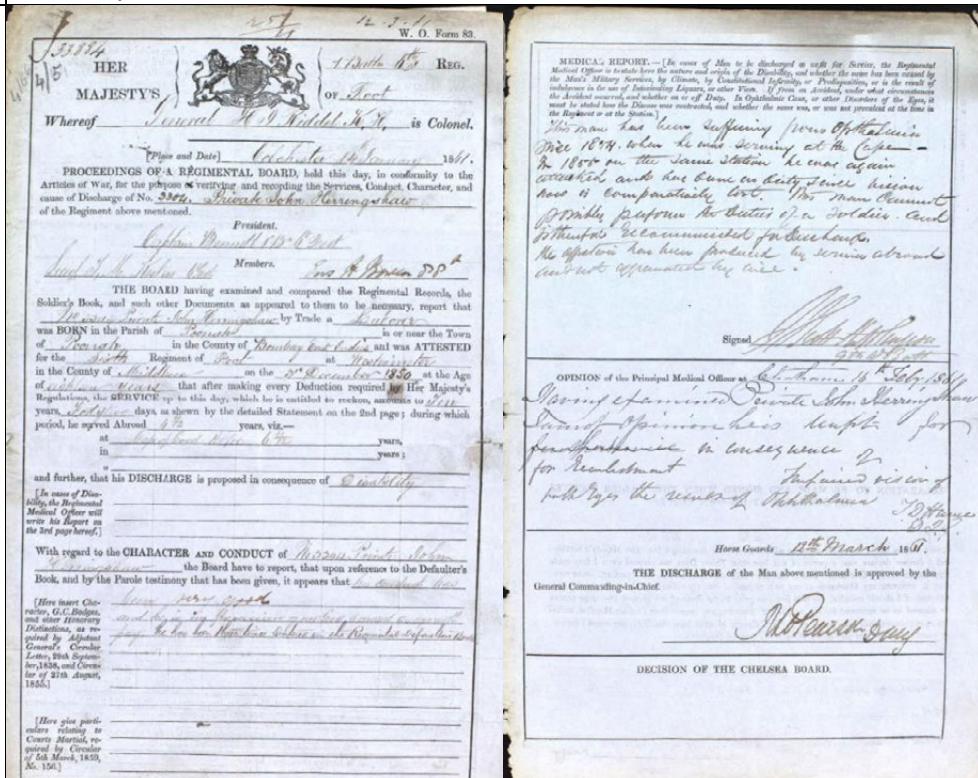 12-3-61
W. O. Form 83.
HER
MAJESTY'S
REG.
OF Foot
Whereof General is Colonel.
[Place and Date] Colchester 14th January 1861.
PROCEEDINGS OF A REGIMENTAL BOARD, held this day, in conformity to the
Articles of War, for the purpose of verifying and recording the Services, Conduct, Character, and
cause of Discharge of No. 3304. Private John Herringshaw
of the Regiment above mentioned.
President.
Captain
Members.
THE BOARD having examined and compared the Regimental Records, the
Soldier's Book, and such other Documents as appeared to them to be necessary, report that
Private John Herringshaw by Trade a Labourer
was BORN in the Parish of in or near the Town
of in the County of Bombay East Indies and was ATTESTED
for the Sixth Regiment of Foot at Westminster
in the County of Middlesex on the December 1850 at the Age
of eighteen years that after making every Deduction required by Her Majesty's
Regulations, the SERVICE up to this day, which he is entitled to reckon, amounts to Ten
years, days, as shewn by the detailed Statement on the 2nd page; during which
period, he served Abroad years, viz.—
at Cape of Good Hope years,
in years;
and further, that his DISCHARGE is proposed in consequence of Disability
[In cases of Disa-
bility, the Regimental
Medical Officer will
write his Report on
the 3rd page hereof.]
With regard to the CHARACTER AND CONDUCT of Private John
Herringshaw the Board have to report, that upon reference to the Defaulter's
Book, and by the Parole testimony that has been given, it appears that his conduct has
been very good
[Here insert Cha-
racter, G.C. Badges,
and other Honorary
Distinctions, as re-
quired by Adjutant
General's Circular
Letter, 29th Septem-
ber, 1838, and Circu-
lar of 27th August,
1855.]
[Here give parti-
culars relating to
Courts Martial, re-
quired by Circular
of 5th March, 1859,
No. 156.]
MEDICAL REPORT.—[In cases of Men to be discharged as unfit for Service, the Regimental
Medical Officer is to state here the nature and origin of the Disability, and whether the same has been caused by
the Man's Military Services, by Climate, by Constitutional Infirmity, or Predisposition, or is the result of
indulgence in the use of Intoxicating Liquors, or other Vices. If from an Accident, under what circumstances
the Accident occurred, and whether on or off Duty. In Ophthalmic Cases, or other Disorders of the Eyes, it
must be stated how the Disease was contracted, and whether the same was, or was not prevalent at the time in
the Regiment or at the Station.]
This man has been suffering from Opthalmia
since 1854 when he was serving at the Cape—
In 1855 on the same station he was again
attacked and has since vision
now is comparatively lost. This man cannot
possibly perform the duties of a soldier. and
is therefore recommended for discharge.
The affection has been produced by service abroad
and not aggravated by vice.
Signed
OPINION of the Principal Medical Officer at Chatham 16th Feby. 1861
Having examined Private John Herringshaw
opinion he is unfit for
in consequence of
Impaired vision of
both Eyes the result of Ophthalmia
Horse Guards 12th March 1861.
THE DISCHARGE of the Man above mentioned is approved by the
General Commanding-in-Chief.
DECISION OF THE CHELSEA BOARD.